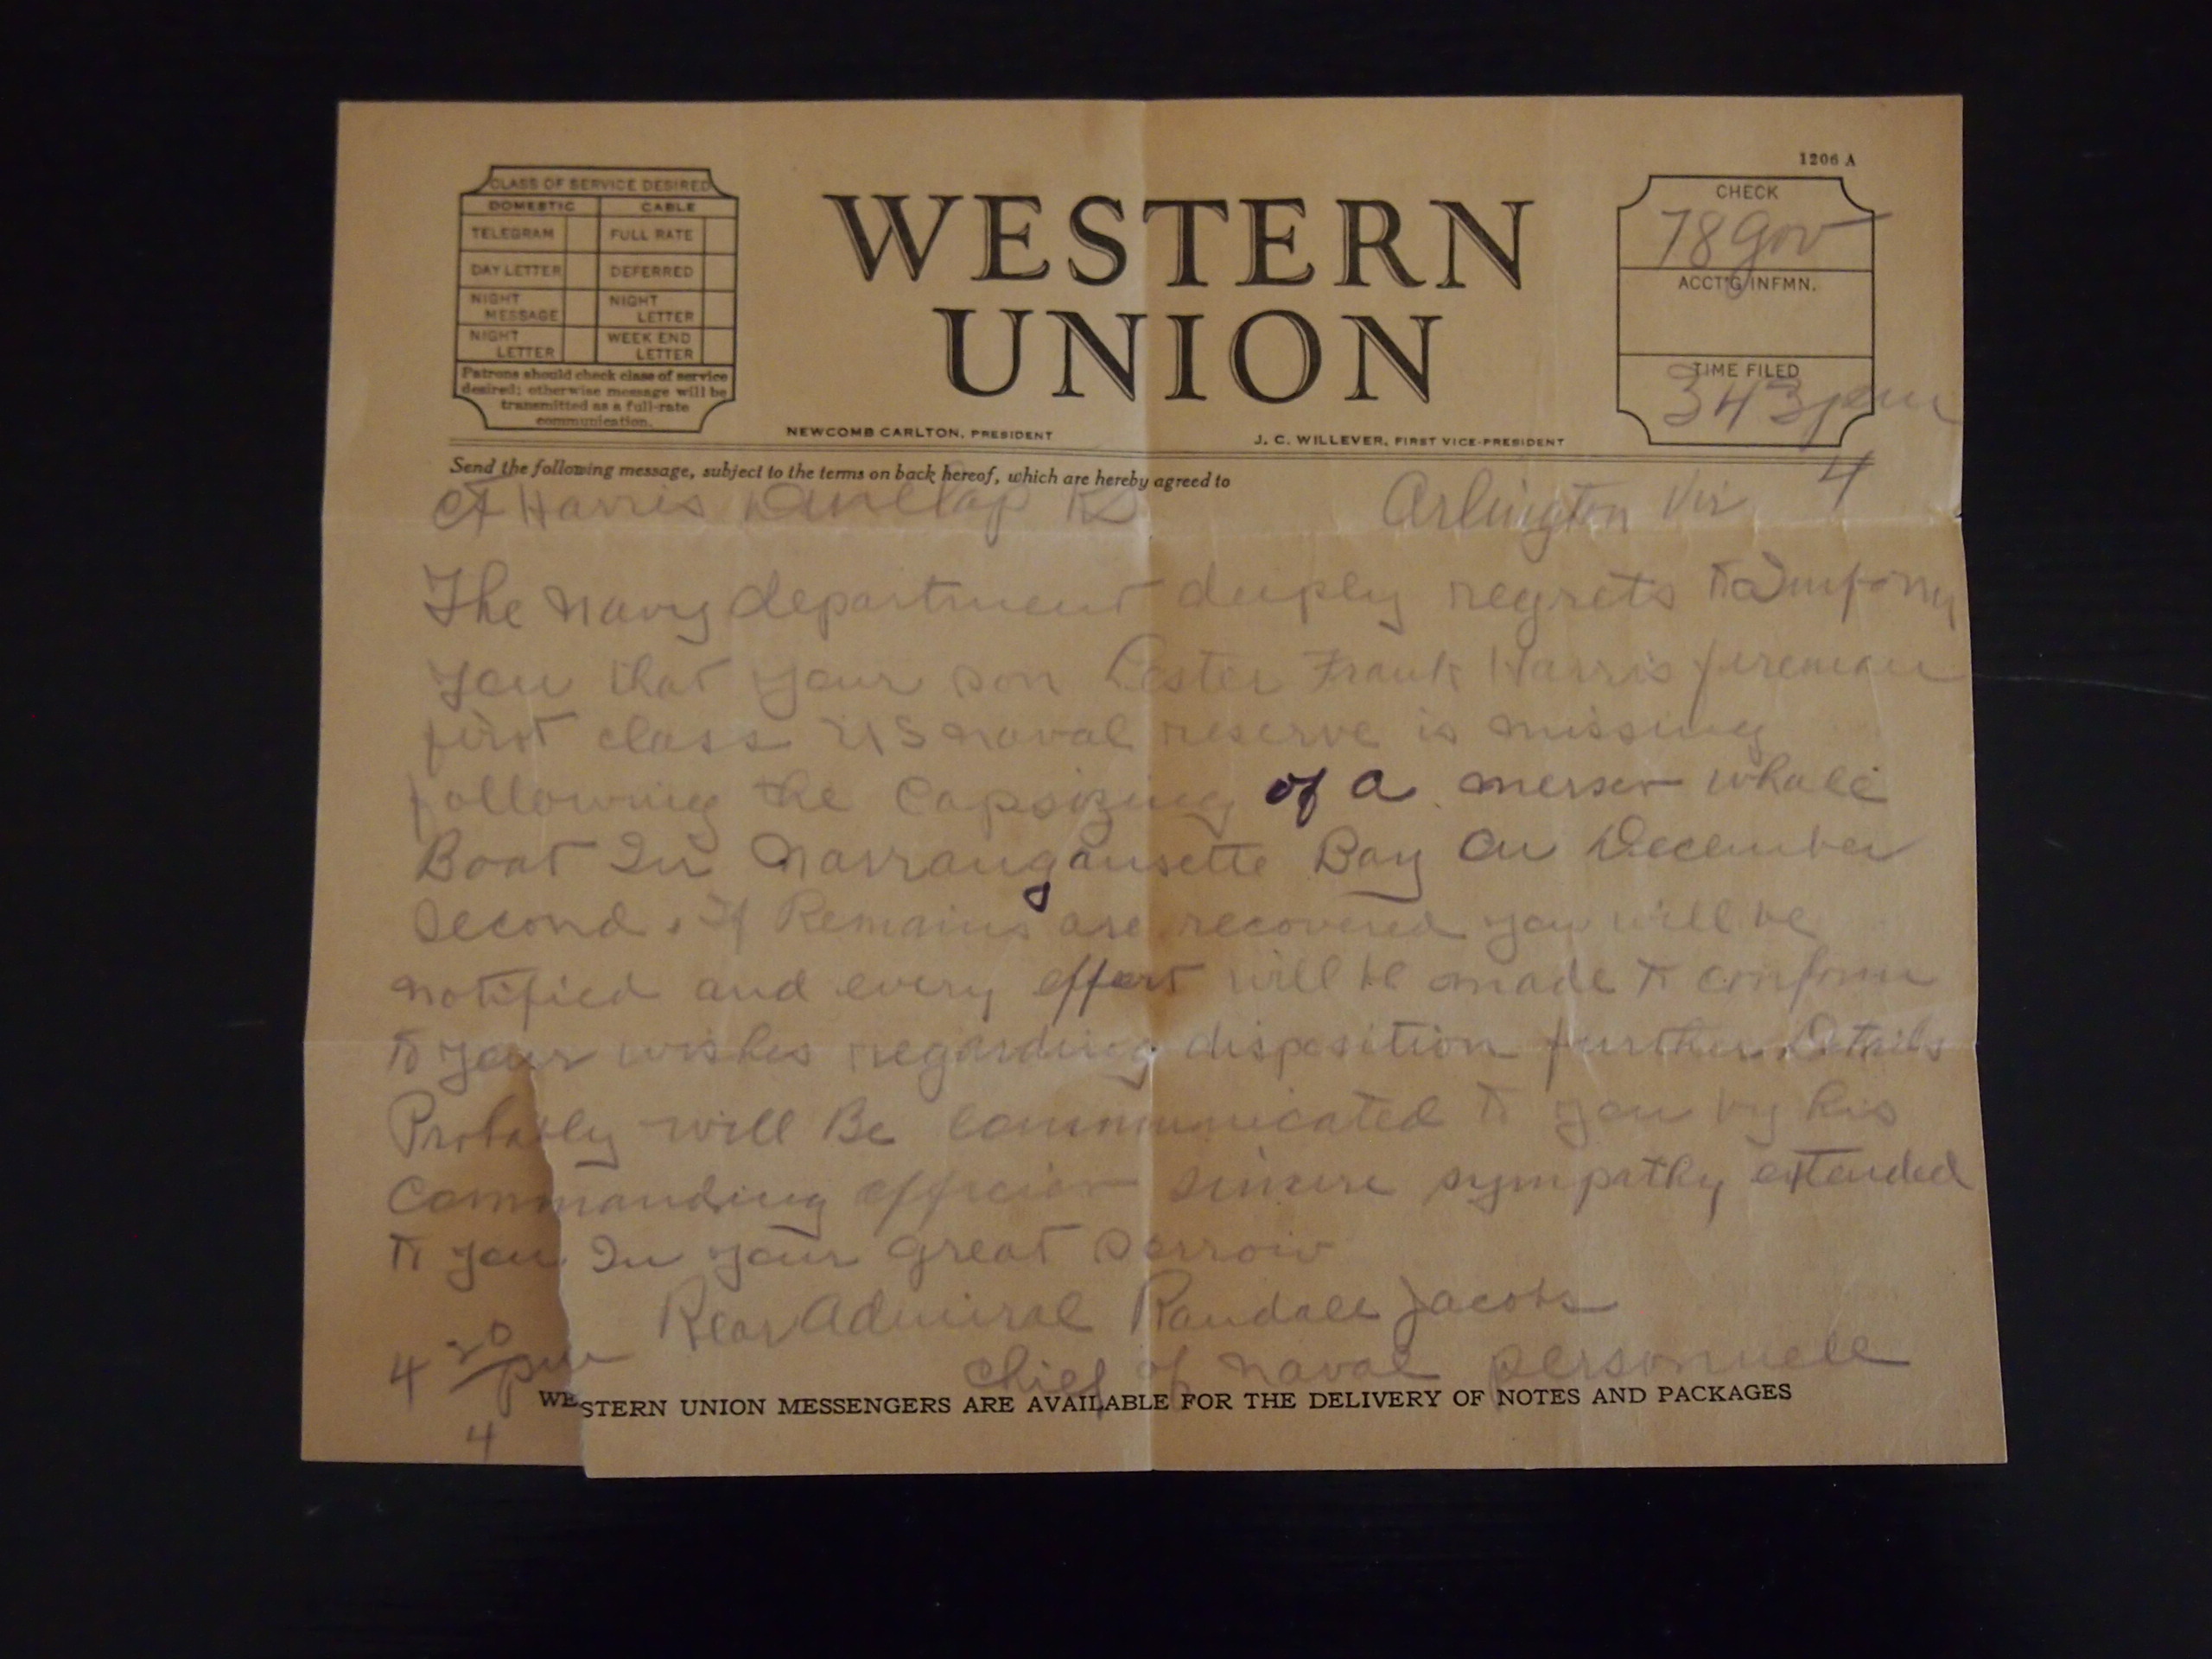 1206 A
CLASS OF SERVICE DESIRED
DOMESTIC CABLE
TELEGRAM FULL RATE
DAY LETTER DEFERRED
NIGHT MESSAGE NIGHT LETTER
NIGHT LETTER WEEK END LETTER
Patrons should check class of service
desired; otherwise message will be
transmitted as a full-rate
communication.
WESTERN
UNION
NEWCOMB CARLTON, PRESIDENT J. C. WILLEVER, FIRST VICE-PRESIDENT
CHECK
78 Gov
ACCT'G INFMN.
TIME FILED
343 pm
Send the following message, subject to the terms on back hereof, which are hereby agreed to
Harris Dunlap Arlington Vir 4
The navy department deeply regrets to Inform
you that your son Lester Frank Harris fireman
first class US naval reserve is missing
following the Capsizing of a whale
Boat In Narrangansette Bay On December
Second. If Remains are recovered you will be
notified and every effort will be made to conform
to your wishes regarding disposition further Details
Probably will Be Communicated to you by his
Commanding officier sincere sympathy extended
to you In your great sorrow
Rear Admiral Randall Jacobs
chief of naval personnell
4 20 pm
4
WESTERN UNION MESSENGERS ARE AVAILABLE FOR THE DELIVERY OF NOTES AND PACKAGES